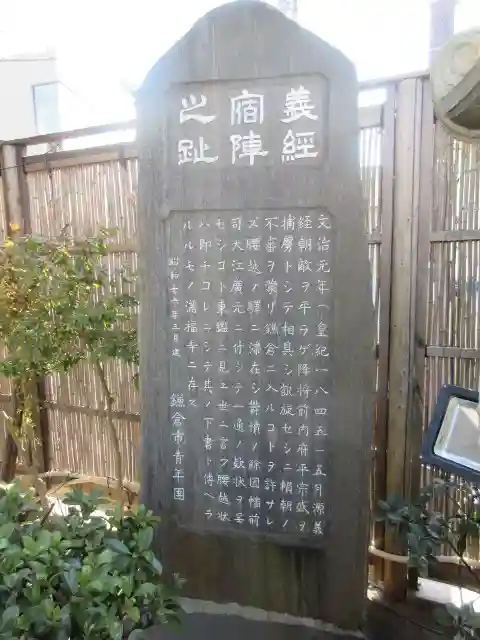 義経
宿陣
之趾
文治元年(皇紀一八四五)五月源義
経朝敵ヲ平ラゲ降将前内府平宗盛ヲ
捕虜トシテ相具シ凱旋セシニ頼朝ノ
不審ヲ蒙リ鎌倉ニ入ルコトヲ許サレ
ズ腰越ノ驛ニ滞在シ欝憤ノ餘因幡前
司大江廣元ニ付シテ一通ノ欵状ヲ呈
セシコト東鑑ニ見ユ世ニ言フ腰越状
ハ即チコレニシテ其ノ下書ト傳ヘラ
ルルモノ満福寺ニ存ス
昭和十六年三月建
鎌倉市青年団